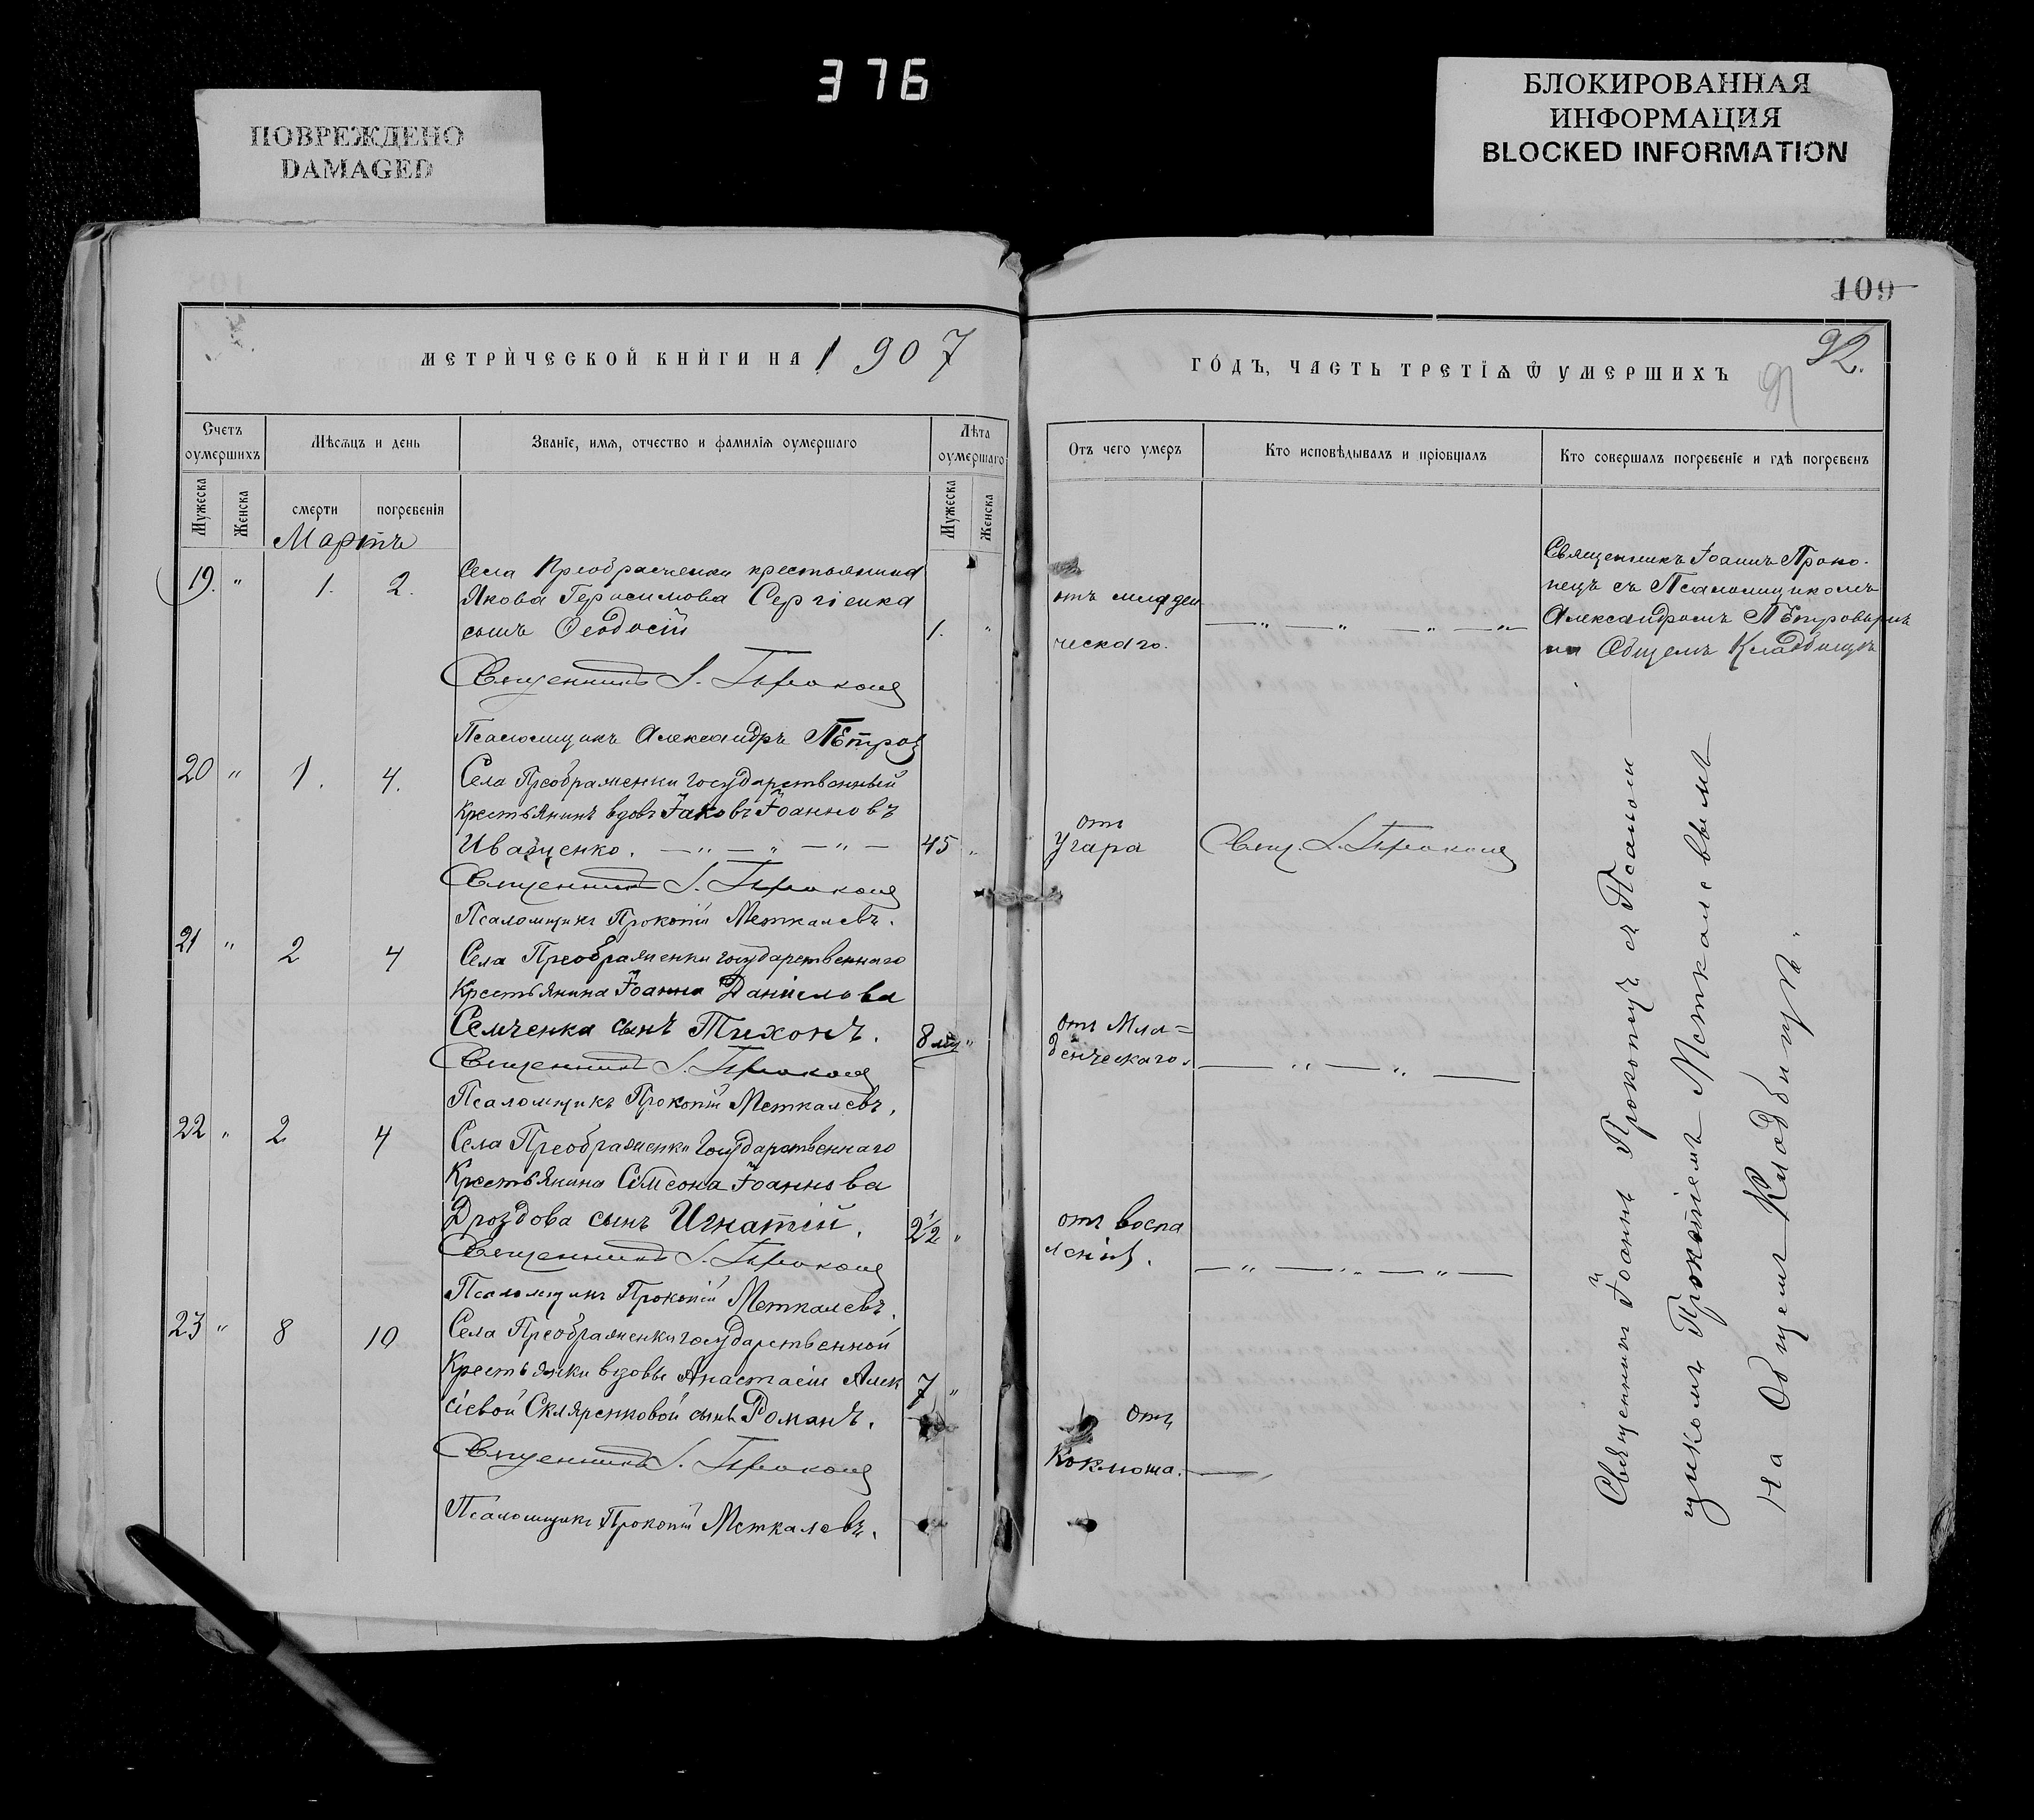 376
ПОВРЕЖДЕНО
DAMAGED
БЛОКИРОВАННАЯ
ИНФОРМАЦИЯ
BLOCKED INFORMATION
109
92.
91
МЕТРИЧЕСКОЙ КНИГИ НА 1907
ГОДЪ, ЧАСТЬ ТРЕТІѦ Ѿ УМЕРШИХЪ
Счетъ оумершихъ
Мѣсѧцъ и день
Званіе, имѧ, отчество и фамиліѧ оумершаго
Лѣта оумершаго
Отъ чего умеръ
Кто исповѣдывалъ и пріобщалъ
Кто совершалъ погребеніе и гдѣ погребенъ
Мужеска
Женска
смерти
погребенія
Мужеска
Женска
Мартъ
19. " 1. 2.
Села Преображенки крестьянина
Якова Герасимова Сергіенка
сынъ Ѳеодосій
1. "
отъ младен
ческаго.
Священникъ Іоаннъ Проко-
пецъ съ Псаломщикомъ
Александромъ Пѣтровымъ
на Общемъ Кладбищѣ
Священникъ І. Прокопецъ
Псаломщикъ Александръ Пѣтровъ
20 " 1. 4.
Села Преображенки государственный
крестьянинъ вдовъ Іаковъ Іоанновъ
Иващенко. — " — " — " —
45 "
отъ
угара
Свящ. І. Прокопецъ
Священникъ І. Прокопецъ
Псаломщикъ Прокопій Меткалевъ.
21 " 2 4
Села Преображенки государственнаго
Крестьянина Іоанна Даніилова
Семченка сынъ Тихонъ.
8 мц "
отъ Мла=
денческаго.
— " — " —
Священникъ І. Прокопецъ
Псаломщикъ Прокопій Меткалевъ.
22 " 2 4
Села Преображенки Государственнаго
Крестьянина Сѵмеона Іоаннова
Дроздова сынъ Игнатій.
2½ "
отъ воспа
ленія.
— " — " — " —
Священникъ І. Прокопецъ
Псаломщикъ Прокопій Меткалевъ.
23 " 8 10
Села Преображенки государственной
Крестьянки вдовы Анастасіи Алек
сіевой Скляренковой сынъ Романъ.
7 "
Отъ
Коклюша.
Священникъ І. Прокопецъ
Псаломщикъ Прокопій Меткалевъ.
Священникъ Іоаннъ Прокопецъ съ Псалом
щикомъ Прокопіемъ Меткалевымъ
на Общемъ Кладбищѣ.